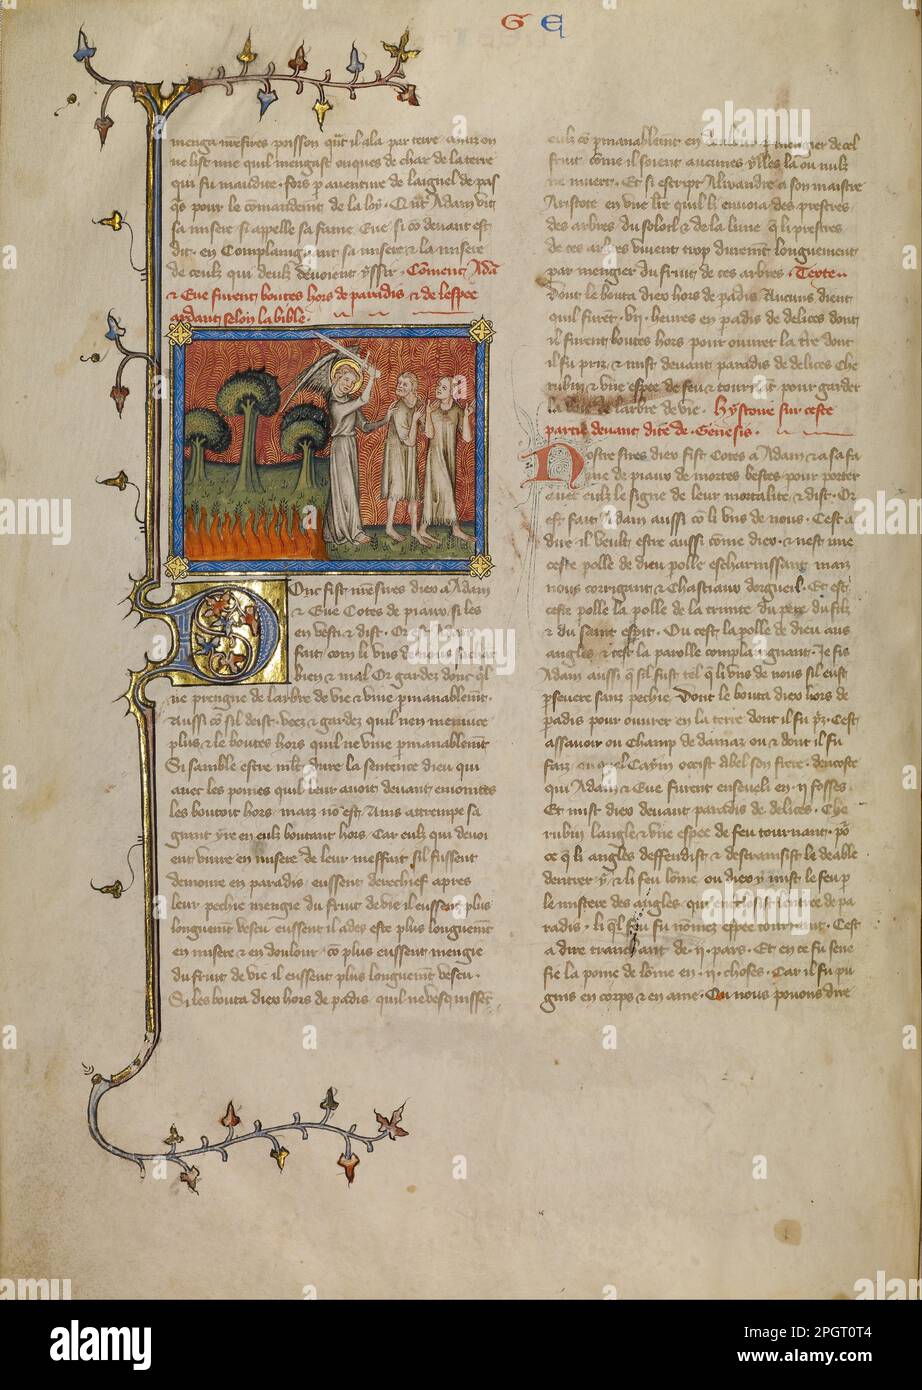 G E
menga nresires poisson qu'il ala par terre
ne list mie quil mengast onques de char de la terre
qui fu maudite · fors
pour le comandement de la loy · Adam vit
sa misere si appelle sa fame Eve si co devant est
dit · en Complaignant sa misere & la misere
de ceulz qui deulz devoient yssir · Coment Adā
& Eve furent boutes hors de paradis & de lespee
ardant selon la bible ·
Donc fist nresires dieu a Adam
& Eve Cotes de piaux si les
en vesti & dist · Or est
fait com li uns de nous
bien & mal Or gardez donc
ne prengne de larbre de vie & vive
Aussi co sil deist · veez & gardez quil nen menjuce
plus & le boutes hors quil ne vive
Si samble estre dure la sentence dieu qui
avec les poines quil leur avoit devant
les boutoit hors · maiz non est Ains attrempe sa
grant yre en eulz boutant hors Car eulz qui devoi
ent vivre en misere de leur meffait sil fussent
demoure en paradis eussent derechief apres
leur pechie mengie du fruit de vie il eussent plus
longuemt vescu eussent il ades este plus longuemt
en misere & en doulour co plus eussent mengie
du fruit de vie il eussent plus longuemt vescu ·
Si les bouta dieu hors de padis quil ne vesquissēt
eulz co pmanablemt en
fruit come il soient aucunes ylles la ou nulz
ne muert · Et si escript Alixandre a son maistre
Aristote en une lre quil li envoia des prestres
des arbres du soloil & de la lune q li prestres
de ces arbres vivent trop duremt longuement
par mengier du fruit de ces arbres · Texte ·
Dont le bouta dieu hors de padis Aucuns dient
quil furēt · vii · heures en padis de delices dont
il furent boutes hors pour ouvrer la tre dont
il fu priz & mist devant paradis de delices che
rubin & une espee de feu & tournāt pour garder
la voie de larbre de vie · hystoire sur ceste
partie devant dite de · Genesis ·
Nostre sires dieu fist Cotes a Adam & a sa fa
me de piaux de mortes bestes pour porter
avec eulz le signe de leur mortalite & dist · Or
est fait Adam aussi co li uns de nous · Cest a
dire il veult estre aussi come dieu · & nest mie
ceste polle de dieu polle escharnissant maiz
nous corrigant & Chastiant dorgueil · Et est
ceste polle la polle de la trinite du pere du filz
& du saint espit · Ou cest la polle de dieu aus
angles & cest la parolle complaignant · Je fis
Adam aussi que sil fust tel q li uns de nous sil eust
pseuere sanz pechie Dont le bouta dieu hors de
padis pour ouvrer en la terre dont il fu prz · Cest
assavoir ou Champ de damaz ou & dont il fu
faiz ou quel Cayin occist abel son frere · decoste
qui Adam & Eve furent enseveli en · ii fosses ·
Et mist dieu devant paradis de delices · Che
rubin langle & une espee de feu tournant · po
ce q li angles deffendist & destrainsist le deable
dentrer y & li feu lome · ou dieu y mist le feu p
le mistere des angles qui
radis · li qel feu fu nomez espee tournant · Cest
a dire tranchant de · ii · pars · Et en ce fu sene
fie la poine de lome en · ii · choses · Car il fu pu
gnis en corps & en ame · Ou nous poons dire
alamy
a
Image ID: 2PGT0T4
www.alamy.com